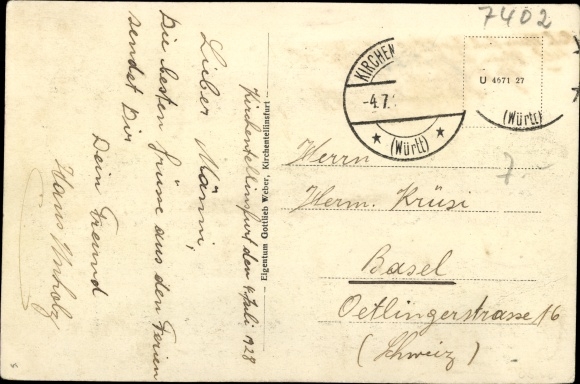 7402
Kirchentellinsfurt den 4. Juli 1928
Lieber Männi,
Die besten Grüsse aus den Ferien
sendet Dir
Dein Freund
Hans
Eigentum Gottlieb Weber, Kirchentellinsfurt
KIRCHEN
-4.7.
(Württ)
U 4671 27
(Württ)
7
Herrn
Herm. Krüsi
Basel
Oetlingerstrasse 16
(Schweiz)